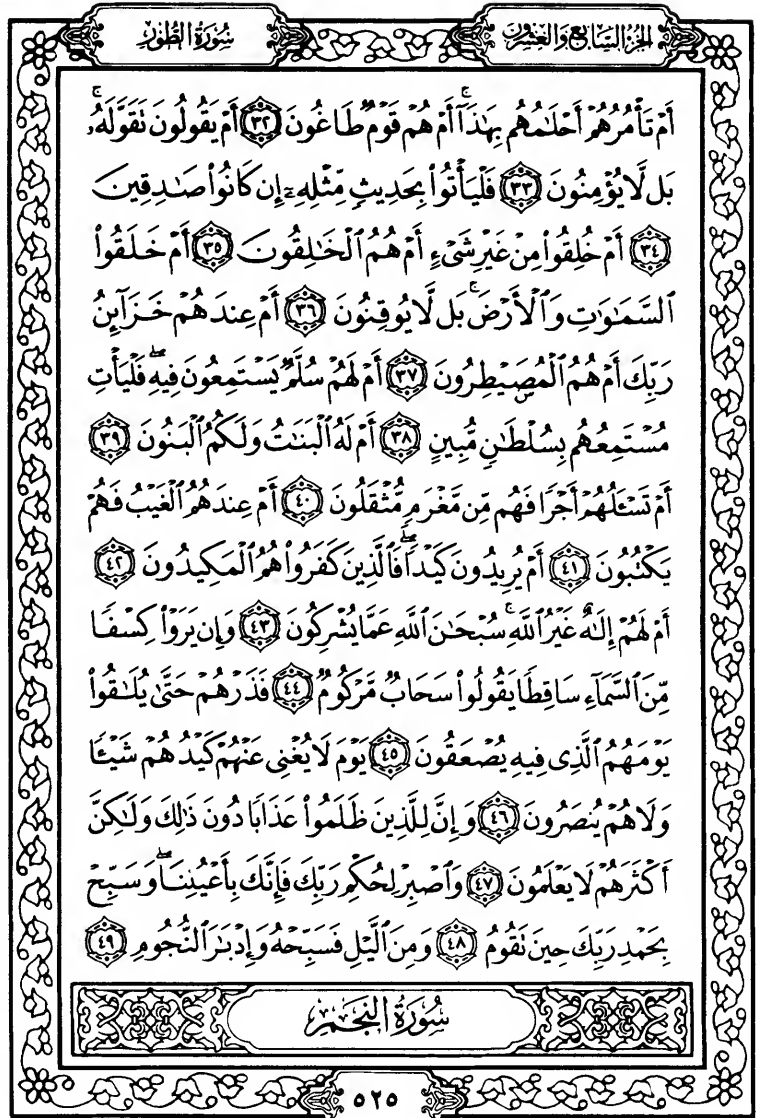 سُورَةُ الطُّورِ
الجُزْءُ السَّابِعُ وَالعِشْرُونَ
أَمْ تَأْمُرُهُمْ أَحْلَٰمُهُم بِهَٰذَآ ۚ أَمْ هُمْ قَوْمٌ طَاغُونَ ٣٢ أَمْ يَقُولُونَ نَقَوَّلَهُۥ ۚ
بَل لَّا يُؤْمِنُونَ ٣٣ فَلْيَأْتُوا۟ بِحَدِيثٍ مِّثْلِهِۦٓ إِن كَانُوا۟ صَٰدِقِينَ
٣٤ أَمْ خُلِقُوا۟ مِنْ غَيْرِ شَىْءٍ أَمْ هُمُ ٱلْخَٰلِقُونَ ٣٥ أَمْ خَلَقُوا۟
ٱلسَّمَٰوَٰتِ وَٱلْأَرْضَ ۚ بَل لَّا يُوقِنُونَ ٣٦ أَمْ عِندَهُمْ خَزَآئِنُ
رَبِّكَ أَمْ هُمُ ٱلْمُصَۣيْطِرُونَ ٣٧ أَمْ لَهُمْ سُلَّمٌ يَسْتَمِعُونَ فِيهِ ۖ فَلْيَأْتِ
مُسْتَمِعُهُم بِسُلْطَٰنٍ مُّبِينٍ ٣٨ أَمْ لَهُ ٱلْبَنَٰتُ وَلَكُمُ ٱلْبَنُونَ ٣٩
أَمْ تَسْـَٔلُهُمْ أَجْرًا فَهُم مِّن مَّغْرَمٍ مُّثْقَلُونَ ٤٠ أَمْ عِندَهُمُ ٱلْغَيْبُ فَهُمْ
يَكْتُبُونَ ٤١ أَمْ يُرِيدُونَ كَيْدًا ۖ فَٱلَّذِينَ كَفَرُوا۟ هُمُ ٱلْمَكِيدُونَ ٤٢
أَمْ لَهُمْ إِلَٰهٌ غَيْرُ ٱللَّهِ ۚ سُبْحَٰنَ ٱللَّهِ عَمَّا يُشْرِكُونَ ٤٣ وَإِن يَرَوْا۟ كِسْفًا
مِّنَ ٱلسَّمَآءِ سَاقِطًا يَقُولُوا۟ سَحَابٌ مَّرْكُومٌ ٤٤ فَذَرْهُمْ حَتَّىٰ يُلَٰقُوا۟
يَوْمَهُمُ ٱلَّذِى فِيهِ يُصْعَقُونَ ٤٥ يَوْمَ لَا يُغْنِى عَنْهُمْ كَيْدُهُمْ شَيْـًٔا
وَلَا هُمْ يُنصَرُونَ ٤٦ وَإِنَّ لِلَّذِينَ ظَلَمُوا۟ عَذَابًا دُونَ ذَٰلِكَ وَلَٰكِنَّ
أَكْثَرَهُمْ لَا يَعْلَمُونَ ٤٧ وَٱصْبِرْ لِحُكْمِ رَبِّكَ فَإِنَّكَ بِأَعْيُنِنَا ۖ وَسَبِّحْ
بِحَمْدِ رَبِّكَ حِينَ تَقُومُ ٤٨ وَمِنَ ٱلَّيْلِ فَسَبِّحْهُ وَإِدْبَٰرَ ٱلنُّجُومِ ٤٩
سُورَةُ النَّجْمِ
٥٢٥